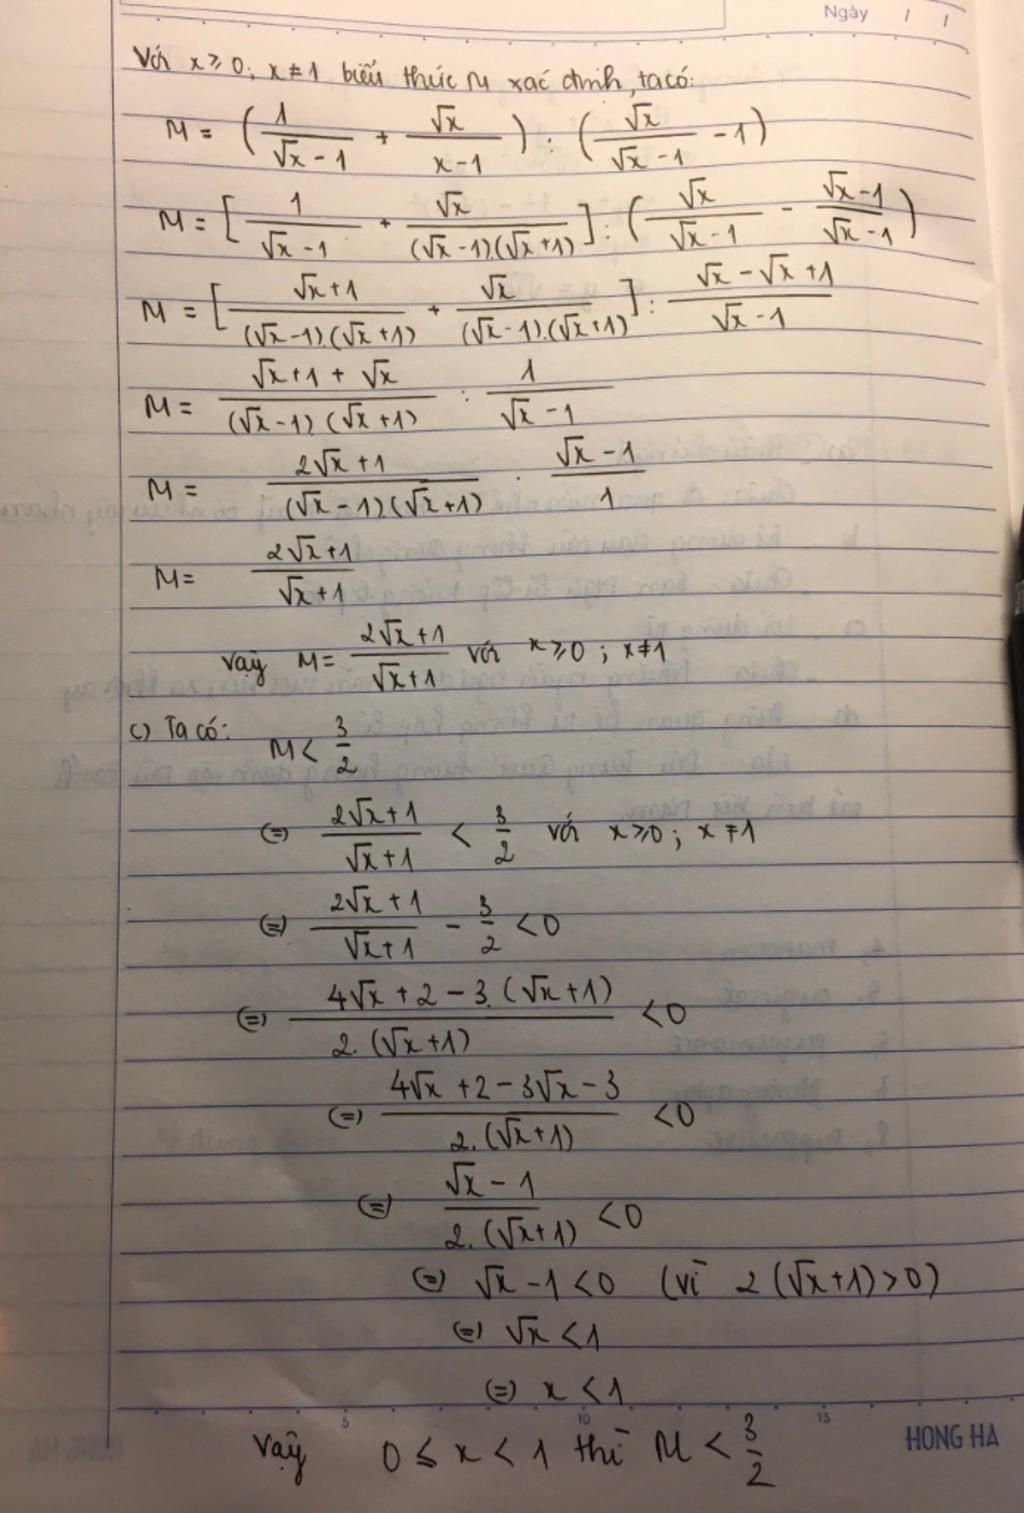 Ngày / /
Với x ≥ 0; x ≠ 1 biểu thức M xác định, ta có:
M = (1/(√x - 1) + √x/(x - 1)) : (√x/(√x - 1) - 1)
M = [1/(√x - 1) + √x/((√x - 1).(√x + 1))] : (√x/(√x - 1) - (√x - 1)/(√x - 1))
M = [(√x + 1)/((√x - 1).(√x + 1)) + √x/((√x - 1).(√x + 1))] : (√x - √x + 1)/(√x - 1)
M = (√x + 1 + √x)/((√x - 1).(√x + 1)) : 1/(√x - 1)
M = (2√x + 1)/((√x - 1).(√x + 1)) . (√x - 1)/1
M = (2√x + 1)/(√x + 1)
Vậy M = (2√x + 1)/(√x + 1) với x ≥ 0; x ≠ 1
c) Ta có: M < 3/2
(=) (2√x + 1)/(√x + 1) < 3/2 với x ≥ 0; x ≠ 1
(=) (2√x + 1)/(√x + 1) - 3/2 < 0
(=) (4√x + 2 - 3.(√x + 1))/(2.(√x + 1)) < 0
(=) (4√x + 2 - 3√x - 3)/(2.(√x + 1)) < 0
(=) (√x - 1)/(2.(√x + 1)) < 0
(=) √x - 1 < 0 (vì 2(√x + 1) > 0)
(=) √x < 1
(=) x < 1
5 10 15
HONG HA
Vậy 0 ≤ x < 1 thì M < 3/2